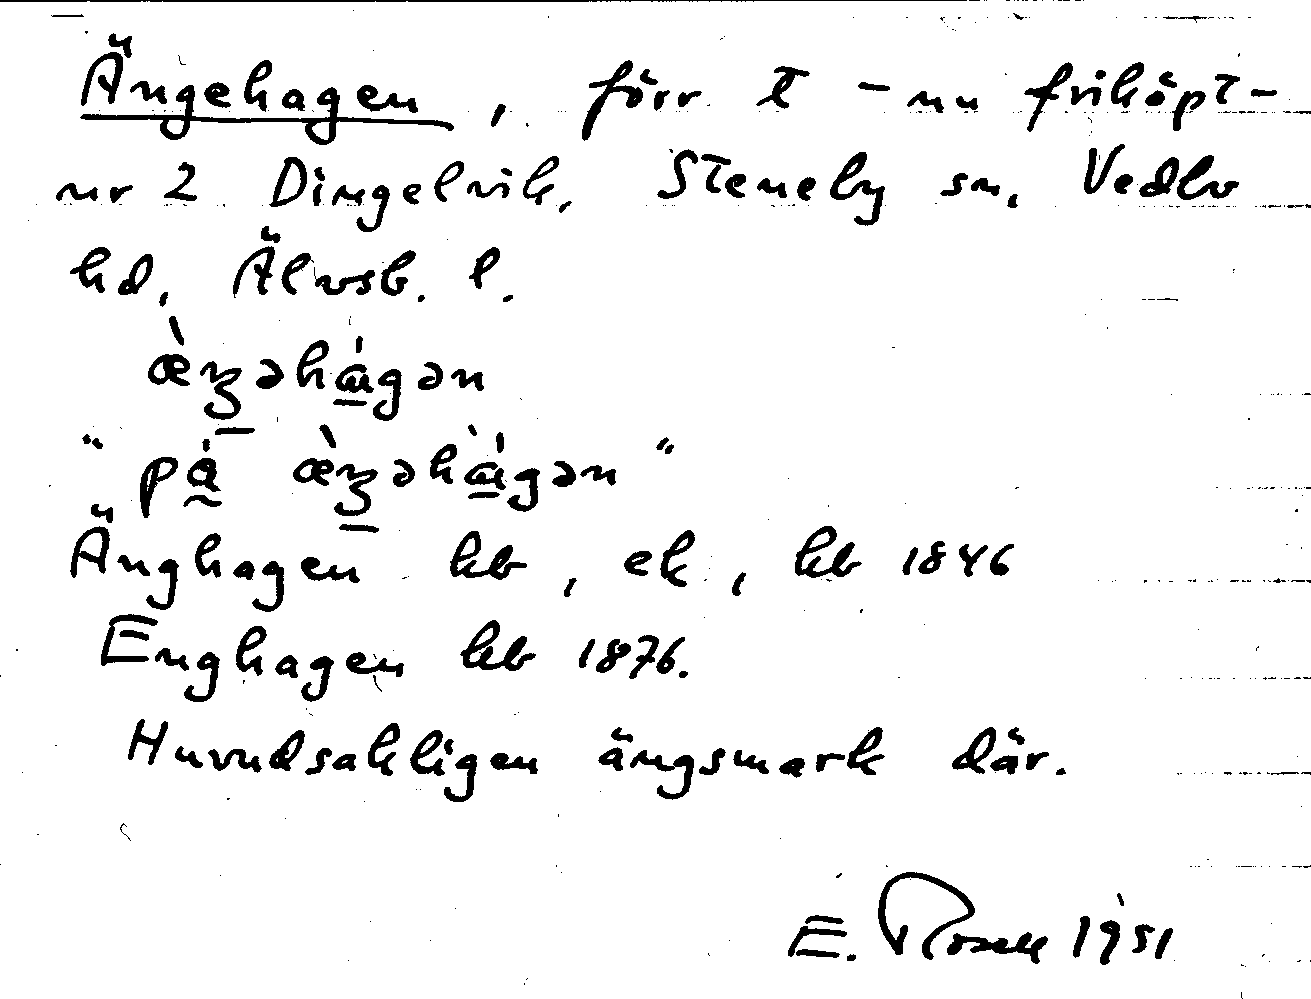 Ängehagen, förr t – nu friköpt –
nr 2 Dingelvik, Steneby sn, Vedbo
hd, Älvsb. l.
æ̀ʒəhágən
"på æ̀ʒəhágən"
Änghagen kb, ek, kb 1846
Enghagen kb 1876.
Huvudsakligen ängsmark där.
E. Rosell 1951